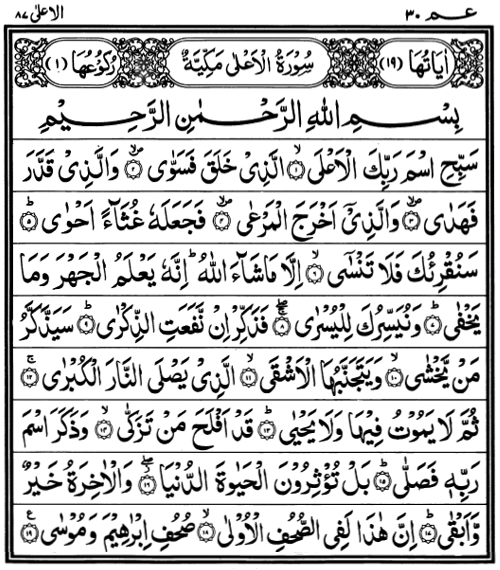 عم ٣٠ الاعلیٰ ٨٧
اٰيَاتُهَا (١٩) سُوْرَةُ الْاَعْلٰى مَكِّيَّةٌ رُكُوْعُهَا (١)
بِسْمِ اللهِ الرَّحْمٰنِ الرَّحِيْمِ
سَبِّحِ اسْمَ رَبِّكَ الْاَعْلَى ۙ﴿١﴾ الَّذِىْ خَلَقَ فَسَوّٰى ۪ۙ﴿٢﴾ وَالَّذِىْ قَدَّرَ
فَهَدٰى ۪ۙ﴿٣﴾ وَالَّذِىْۤ اَخْرَجَ الْمَرْعٰى ۪ۙ﴿٤﴾ فَجَعَلَهٗ غُثَآءً اَحْوٰى ؕ﴿٥﴾
سَنُقْرِئُكَ فَلَا تَنْسٰٓى ۙ﴿٦﴾ اِلَّا مَا شَآءَ اللهُ ؕ اِنَّهٗ يَعْلَمُ الْجَهْرَ وَمَا
يَخْفٰى ؕ﴿٧﴾ وَنُيَسِّرُكَ لِلْيُسْرٰى ۚۖ﴿٨﴾ فَذَكِّرْ اِنْ نَّفَعَتِ الذِّكْرٰى ؕ﴿٩﴾ سَيَذَّكَّرُ
مَنْ يَّخْشٰى ۙ﴿١٠﴾ وَيَتَجَنَّبُهَا الْاَشْقَى ۙ﴿١١﴾ الَّذِىْ يَصْلَى النَّارَ الْكُبْرٰى ۚ﴿١٢﴾
ثُمَّ لَا يَمُوْتُ فِيْهَا وَلَا يَحْيٰى ؕ﴿١٣﴾ قَدْ اَفْلَحَ مَنْ تَزَكّٰى ۙ﴿١٤﴾ وَذَكَرَ اسْمَ
رَبِّهٖ فَصَلّٰى ؕ﴿١٥﴾ بَلْ تُؤْثِرُوْنَ الْحَيٰوةَ الدُّنْيَا ۖ﴿١٦﴾ وَالْاٰخِرَةُ خَيْرٌ
وَّاَبْقٰى ؕ﴿١٧﴾ اِنَّ هٰذَا لَفِى الصُّحُفِ الْاُوْلٰى ۙ﴿١٨﴾ صُحُفِ اِبْرٰهِيْمَ وَمُوْسٰى ﴿١٩﴾ ع